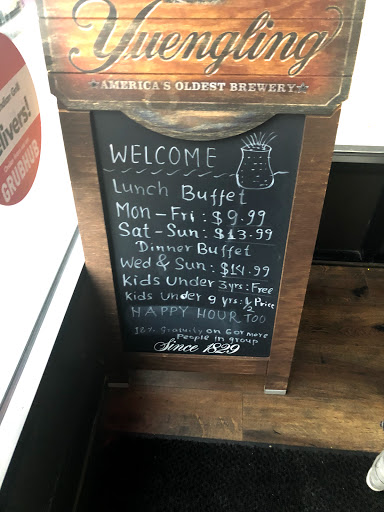 Yuengling
AMERICA'S OLDEST BREWERY
WELCOME
Lunch Buffet
Mon-Fri: $9.99
Sat-Sun: $13.99
Dinner Buffet
Wed & Sun: $14.99
Kids Under 3yrs: Free
Kids Under 9 yrs: 1/2 Price
HAPPY HOUR TOO
18% Gratuity on 6 or more
People in group
Since 1829
GRUBHUB